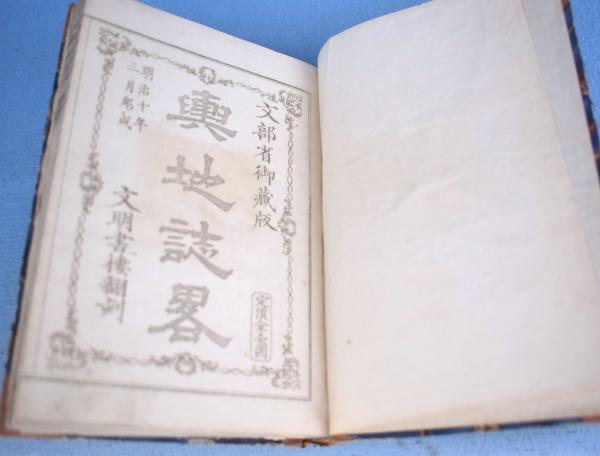 文部省御蔵版
輿地誌畧
定價金壹圓
明治十年
三月刻成
文明書樓翻刻